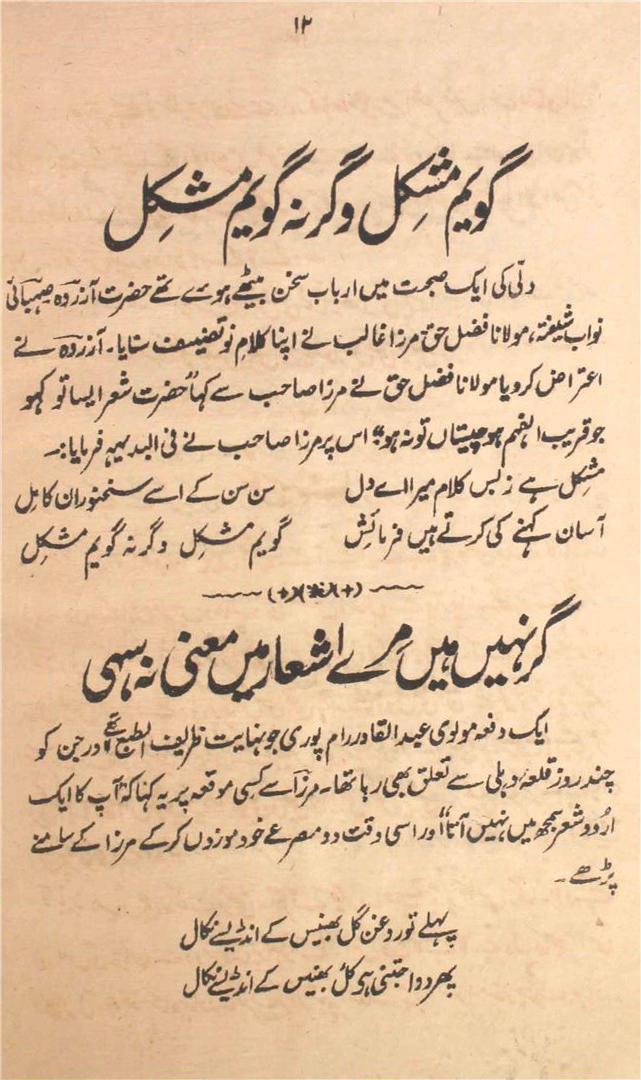 ۱۲
گویم مشکل وگرنہ گویم مشکل
دلّی کی ایک صحبت میں ارباب سخن بیٹھے ہوے تھے حضرت آزردہ صہبائی
نواب شیفتہ، مولانا فضل حق مرزا غالب نے اپنا کلام نو تصنیف سنایا۔ آزردہ نے
اعتراض کردیا مولانا فضل حق نے مرزا صاحب سے کہا "حضرت شعر ایسا تو کہو
جو قریب الفہم ہو چیستاں تو نہ ہو" اس پر مرزا صاحب نے فی البدیہہ فرمایا:۔
مشکل ہے زبس کلام میرا اے دل سن سن کے اسے سخنوران کامل
آسان کہنے کی کرتے ہیں فرمائش گویم مشکل وگرنہ گویم مشکل
(+)(※)(+)
گر نہیں ہیں مرے اشعار میں معنی نہ سہی
ایک دفعہ مولوی عبدالقادر رام پوری جو نہایت ظریف الطبع تھے اور جن کو
چند روز قلعہ دہلی سے تعلق بھی رہا تھا۔ مرزا سے کسی موقعہ پر یہ کہا کہ "آپ کا ایک
اردو شعر سمجھ میں نہیں آتا" اور اسی وقت دو مصرعے خود موزوں کرکے مرزا کے سامنے
پڑھے۔
پہلے تو روغن گل بھینس کے انڈے سے نکال
پھر دوا جتنی ہی کل بھینس کے انڈے سے نکال